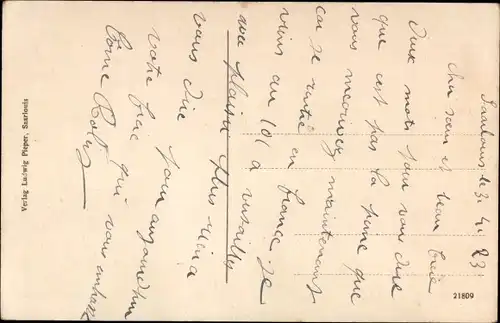 Saarlouis le 3. 4. 23
Cher sœur et beau frère
Deux mots pour vous dire
que c'est pas la peine que
vous m'envoyez maintenant
car je rentre en france je
viens au 101 a versailles
avec plaisir plus rien a
vous dire pour aujourdhui
votre frère qui vous embrasse
Verlag Ludwig Pieper, Saarlouis
21809